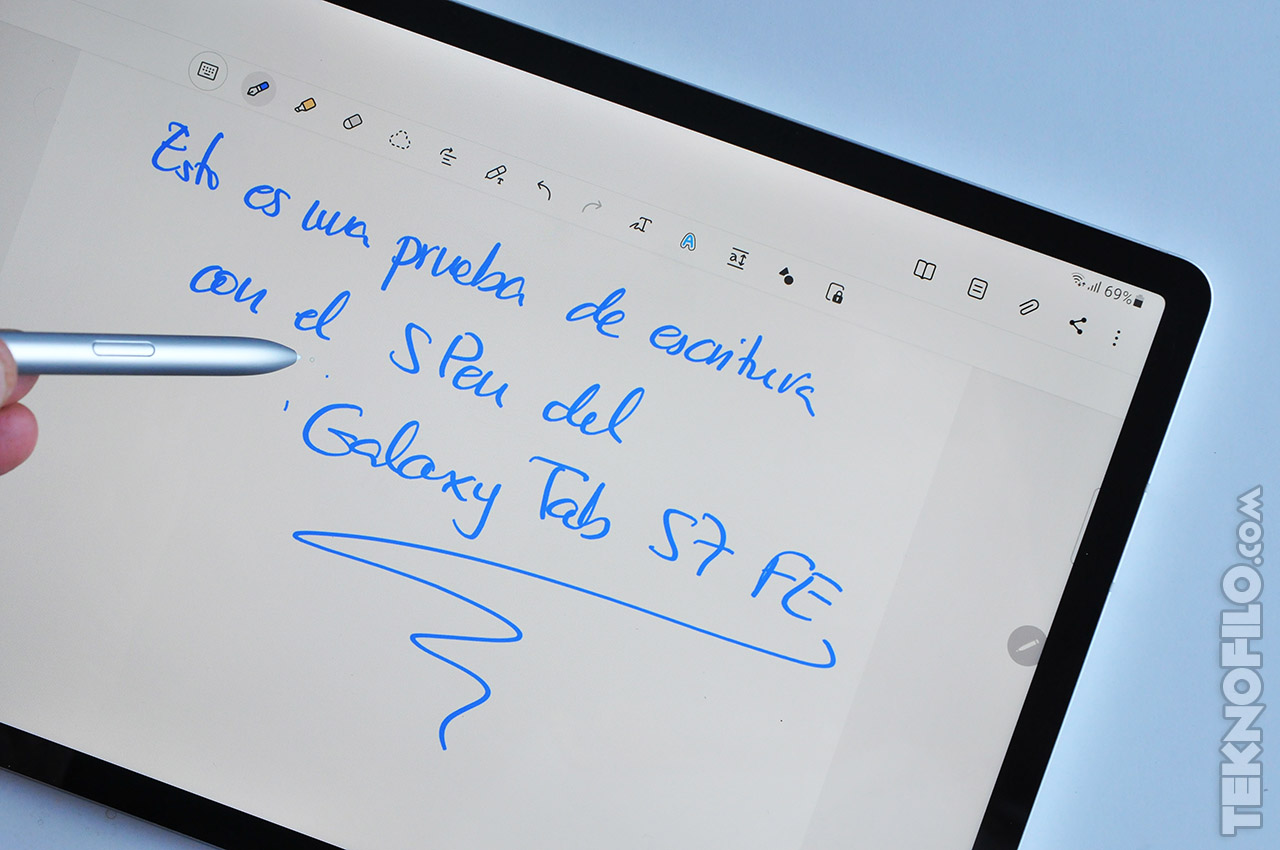 69%
Esto es una prueba de escritura
con el SPen del
Galaxy Tab S7 FE
TEKNOFILO.COM